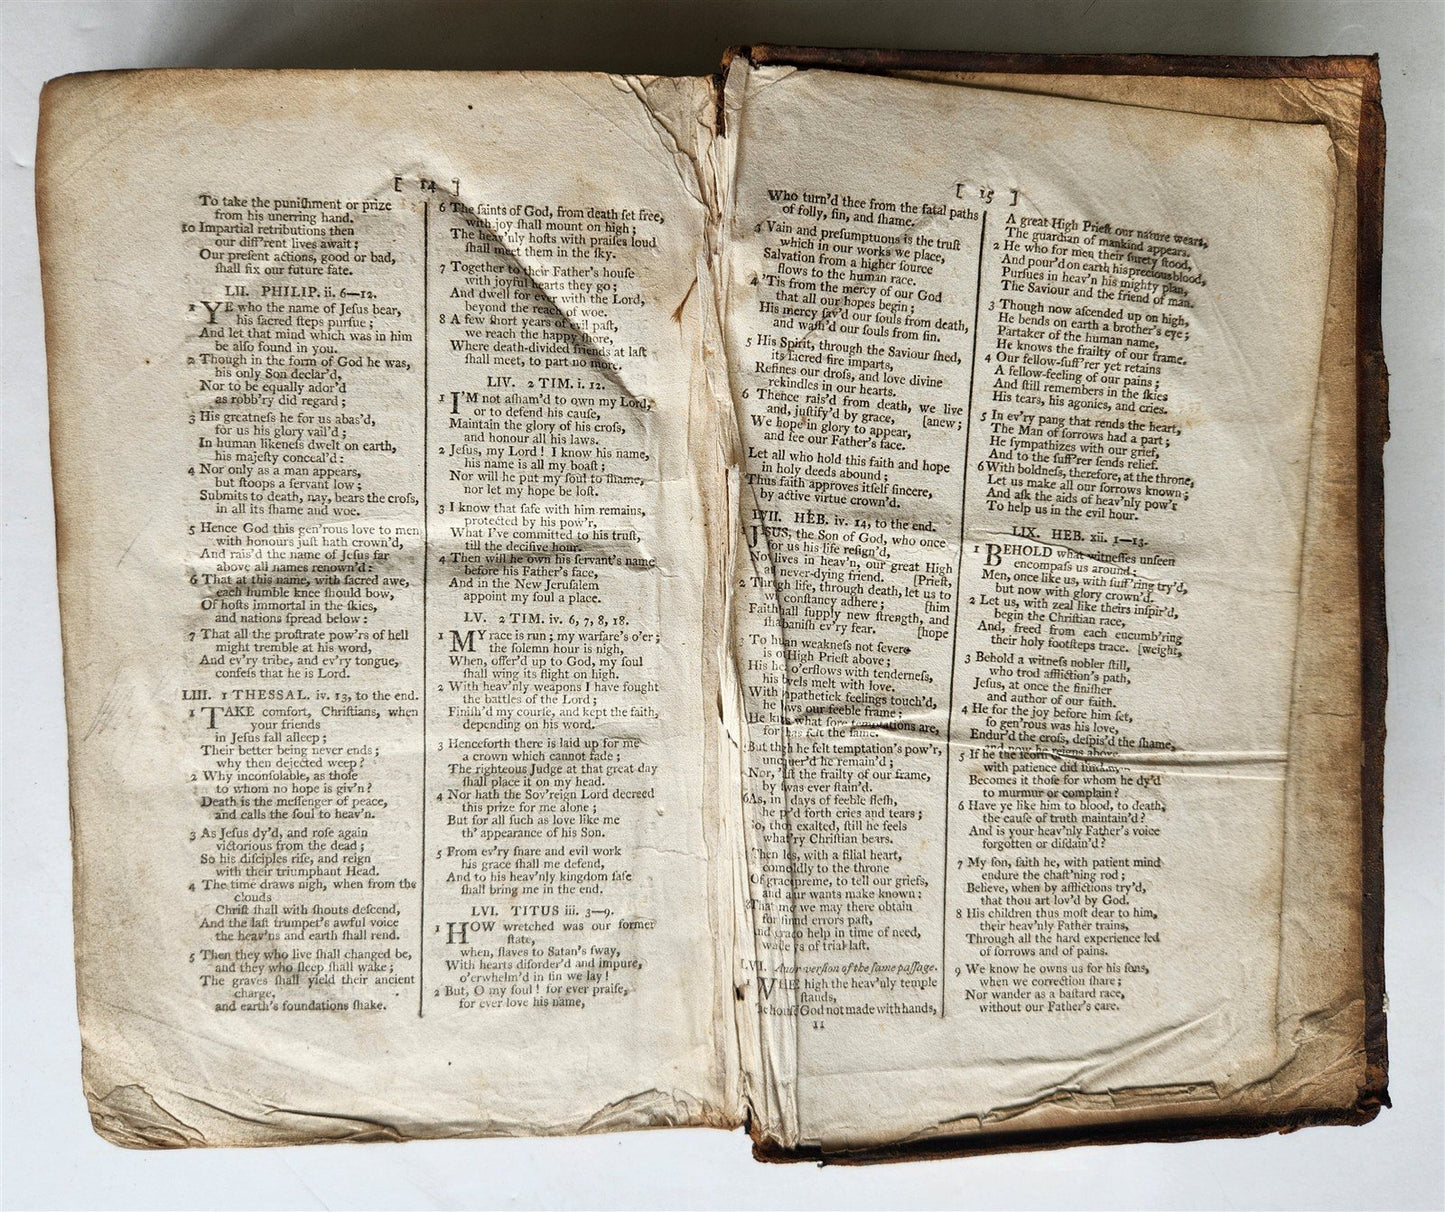 [ 14 ]
To take the puniſhment or prize
from his unerring hand.
10 Impartial retributions then
our diff'rent lives await ;
Our preſent actions, good or bad,
ſhall fix our future fate.
LII. PHILIP. ii. 6—12.
1 YE who the name of Jeſus bear,
his ſacred ſteps purſue ;
And let that mind which was in him
be alſo found in you.
2 Though in the form of God he was,
his only Son declar'd,
Nor to be equally ador'd
as robb'ry did regard ;
3 His greatneſs he for us abas'd,
for us his glory vail'd ;
In human likeneſs dwelt on earth,
his majeſty conceal'd :
4 Nor only as a man appears,
but ſtoops a ſervant low ;
Submits to death, nay, bears the croſs,
in all its ſhame and woe.
5 Hence God this gen'rous love to men
with honours juſt hath crown'd,
And rais'd the name of Jeſus far
above all names renown'd :
6 That at this name, with ſacred awe,
each humble knee ſhould bow,
Of hoſts immortal in the ſkies,
and nations ſpread below :
7 That all the proſtrate pow'rs of hell
might tremble at his word,
And ev'ry tribe, and ev'ry tongue,
confeſs that he is Lord.
LIII. 1 THESSAL. iv. 13, to the end.
1 TAKE comfort, Chriſtians, when
your friends
in Jeſus fall aſleep ;
Their better being never ends ;
why then dejected weep ?
2 Why inconſolable, as thoſe
to whom no hope is giv'n ?
Death is the meſſenger of peace,
and calls the ſoul to heav'n.
3 As Jeſus dy'd, and roſe again
victorious from the dead ;
So his diſciples riſe, and reign
with their triumphant Head.
4 The time draws nigh, when from the
clouds
Chriſt ſhall with ſhouts deſcend,
And the laſt trumpet's awful voice
the heav'ns and earth ſhall rend.
5 Then they who live ſhall changed be,
and they who ſleep ſhall wake ;
The graves ſhall yield their ancient
charge,
and earth's foundations ſhake.
6 The ſaints of God, from death ſet free,
with joy ſhall mount on high ;
The heav'nly hoſts with praiſes loud
ſhall meet them in the ſky.
7 Together to their Father's houſe
with joyful hearts they go ;
And dwell for ever with the Lord,
beyond the reach of woe.
8 A few ſhort years of evil paſt,
we reach the happy ſhore,
Where death-divided friends at laſt
ſhall meet, to part no more.
LIV. 2 TIM. i. 12.
1 I'M not aſham'd to own my Lord,
or to defend his cauſe,
Maintain the glory of his croſs,
and honour all his laws.
2 Jeſus, my Lord ! I know his name,
his name is all my boaſt ;
Nor will he put my ſoul to ſhame,
nor let my hope be loſt.
3 I know that ſafe with him remains,
protected by his pow'r,
What I've committed to his truſt,
till the deciſive hour.
4 Then will he own his ſervant's name
before his Father's face,
And in the New Jeruſalem
appoint my ſoul a place.
LV. 2 TIM. iv. 6, 7, 8, 18.
1 MY race is run ; my warfare's o'er ;
the ſolemn hour is nigh,
When, offer'd up to God, my ſoul
ſhall wing its flight on high.
2 With heav'nly weapons I have fought
the battles of the Lord ;
Finiſh'd my courſe, and kept the faith,
depending on his word.
3 Henceforth there is laid up for me
a crown which cannot fade ;
The righteous Judge at that great day
ſhall place it on my head.
4 Nor hath the Sov'reign Lord decreed
this prize for me alone ;
But for all ſuch as love like me
th' appearance of his Son.
5 From ev'ry ſnare and evil work
his grace ſhall me defend,
And to his heav'nly kingdom ſafe
ſhall bring me in the end.
LVI. TITUS iii. 3—9.
1 HOW wretched was our former
ſtate,
when, ſlaves to Satan's ſway,
With hearts diſorder'd and impure,
o'erwhelm'd in ſin we lay !
2 But, O my ſoul ! for ever praiſe,
for ever love his name,
[ 15 ]
Who turn'd thee from the fatal paths
of folly, ſin, and ſhame.
3 Vain and preſumptuous is the truſt
which in our works we place,
Salvation from a higher ſource
flows to the human race.
4 'Tis from the mercy of our God
that all our hopes begin ;
His mercy ſav'd our ſouls from death,
and waſh'd our ſouls from ſin.
5 His Spirit, through the Saviour ſhed,
its ſacred fire imparts,
Refines our droſs, and love divine
rekindles in our hearts.
6 Thence rais'd from death, we live
and, juſtify'd by grace, [anew ;
We hope in glory to appear,
and ſee our Father's face.
Let all who hold this faith and hope
in holy deeds abound ;
Thus faith approves itſelf ſincere,
by active virtue crown'd.
LVII. HEB. iv. 14, to the end.
JESUS, the Son of God, who once
for us his life reſign'd,
Now lives in heav'n, our great High
never-dying friend. [Prieſt,
2 Through life, through death, let us to
conſtancy adhere ; [him
Faith ſhall ſupply new ſtrength, and
baniſh ev'ry fear. [hope
To human weakneſs not ſevere
is our High Prieſt above ;
His heart o'erflows with tenderneſs,
his bowels melt with love.
With ſympathetick feelings touch'd,
he knows our feeble frame ;
He knows what ſore temptations are,
for has felt the ſame.
But though he felt temptation's pow'r,
unconquer'd he remain'd ;
Nor, 'midſt the frailty of our frame,
by ſin was ever ſtain'd.
6 As, in days of feeble fleſh,
he pour'd forth cries and tears ;
So, though exalted, ſtill he feels
what ev'ry Chriſtian bears.
Then let us, with a filial heart,
come boldly to the throne
Of grace ſupreme, to tell our griefs,
and all our wants make known :
That mercy we may there obtain
for ſins and errors paſt,
And grace to help in time of need,
days of trial laſt.
Another verſion of the ſame paſſage.
1 WHERE high the heav'nly temple
ſtands,
The houſe of God not made with hands,
A great High Prieſt our nature wears,
The guardian of mankind appears.
2 He who for men their ſurety ſtood,
And pour'd on earth his precious blood,
Purſues in heav'n his mighty plan,
The Saviour and the friend of man.
3 Though now aſcended up on high,
He bends on earth a brother's eye ;
Partaker of the human name,
He knows the frailty of our frame.
4 Our fellow-ſuff'rer yet retains
A fellow-feeling of our pains ;
And ſtill remembers in the ſkies
His tears, his agonies, and cries.
5 In ev'ry pang that rends the heart,
The Man of ſorrows had a part ;
He ſympathizes with our grief,
And to the ſuff'rer ſends relief.
6 With boldneſs, therefore, at the throne,
Let us make all our ſorrows known ;
And aſk the aids of heav'nly pow'r
To help us in the evil hour.
LIX. HEB. xii. 1—13.
1 BEHOLD what witneſſes unſeen
encompaſs us around ;
Men, once like us, with ſuff'ring try'd,
but now with glory crown'd.
2 Let us, with zeal like theirs inſpir'd,
begin the Chriſtian race,
And, freed from each encumb'ring
their holy footſteps trace. [weight,
3 Behold a witneſs nobler ſtill,
who trod affliction's path,
Jeſus, at once the finiſher
and author of our faith.
4 He for the joy before him ſet,
ſo gen'rous was his love,
Endur'd the croſs, deſpis'd the ſhame,
and now he reigns above.
5 If he the ſcorn
with patience did ſuſtain,
Becomes it thoſe for whom he dy'd
to murmur or complain ?
6 Have ye like him to blood, to death,
the cauſe of truth maintain'd ?
And is your heav'nly Father's voice
forgotten or diſdain'd ?
7 My ſon, ſaith he, with patient mind
endure the chaſt'ning rod ;
Believe, when by afflictions try'd,
that thou art lov'd by God.
8 His children thus moſt dear to him,
their heav'nly Father trains,
Through all the hard experience led
of ſorrows and of pains.
9 We know he owns us for his ſons,
when we correction ſhare ;
Nor wander as a baſtard race,
without our Father's care.
11